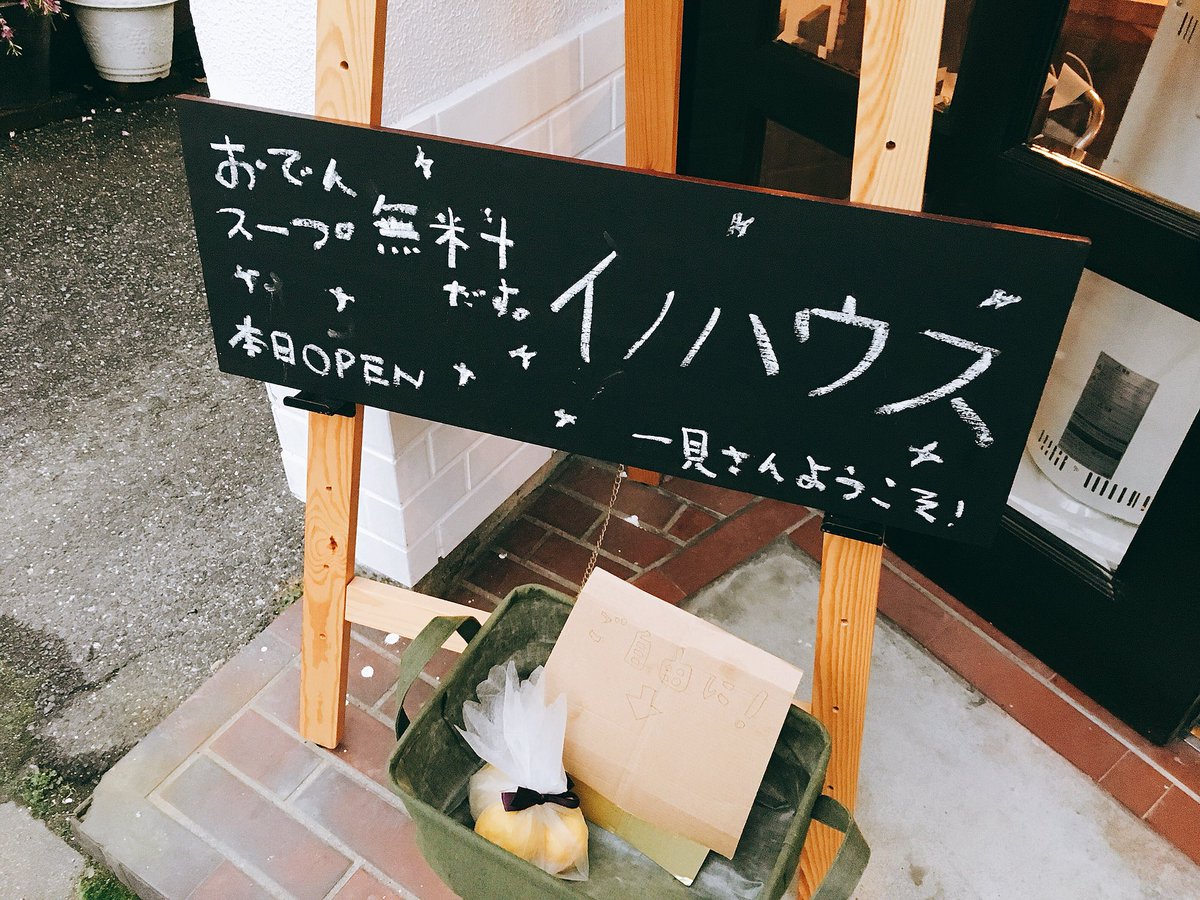 おでん
スープ無料
だす。
本日OPEN
イノハウス
一見さんようこそ!
ご自由に!